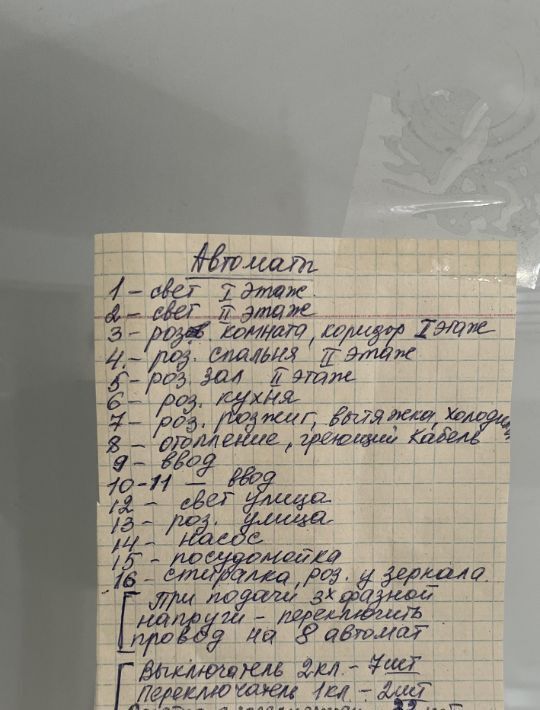 Автоматы
1 - свет I этаж
2 - свет II этаж
3 - роз. комната, коридор I этаж
4 - роз. спальня II этаж
5 - роз. зал II этаж
6 - роз. кухня
7 - роз. розжиг, вытяжка, холодиль
8 - отопление, греющий кабель
9 - ввод
10-11 - ввод
12 - свет улица
13 - роз. улица
14 - насос
15 - посудомойка
16 - стиралка, роз. у зеркала
При подачи 3х фазной
напруги - переключить
провод на 8 автомат
Выключатель 2кл. - 7шт
Переключатель 1кл - 2шт